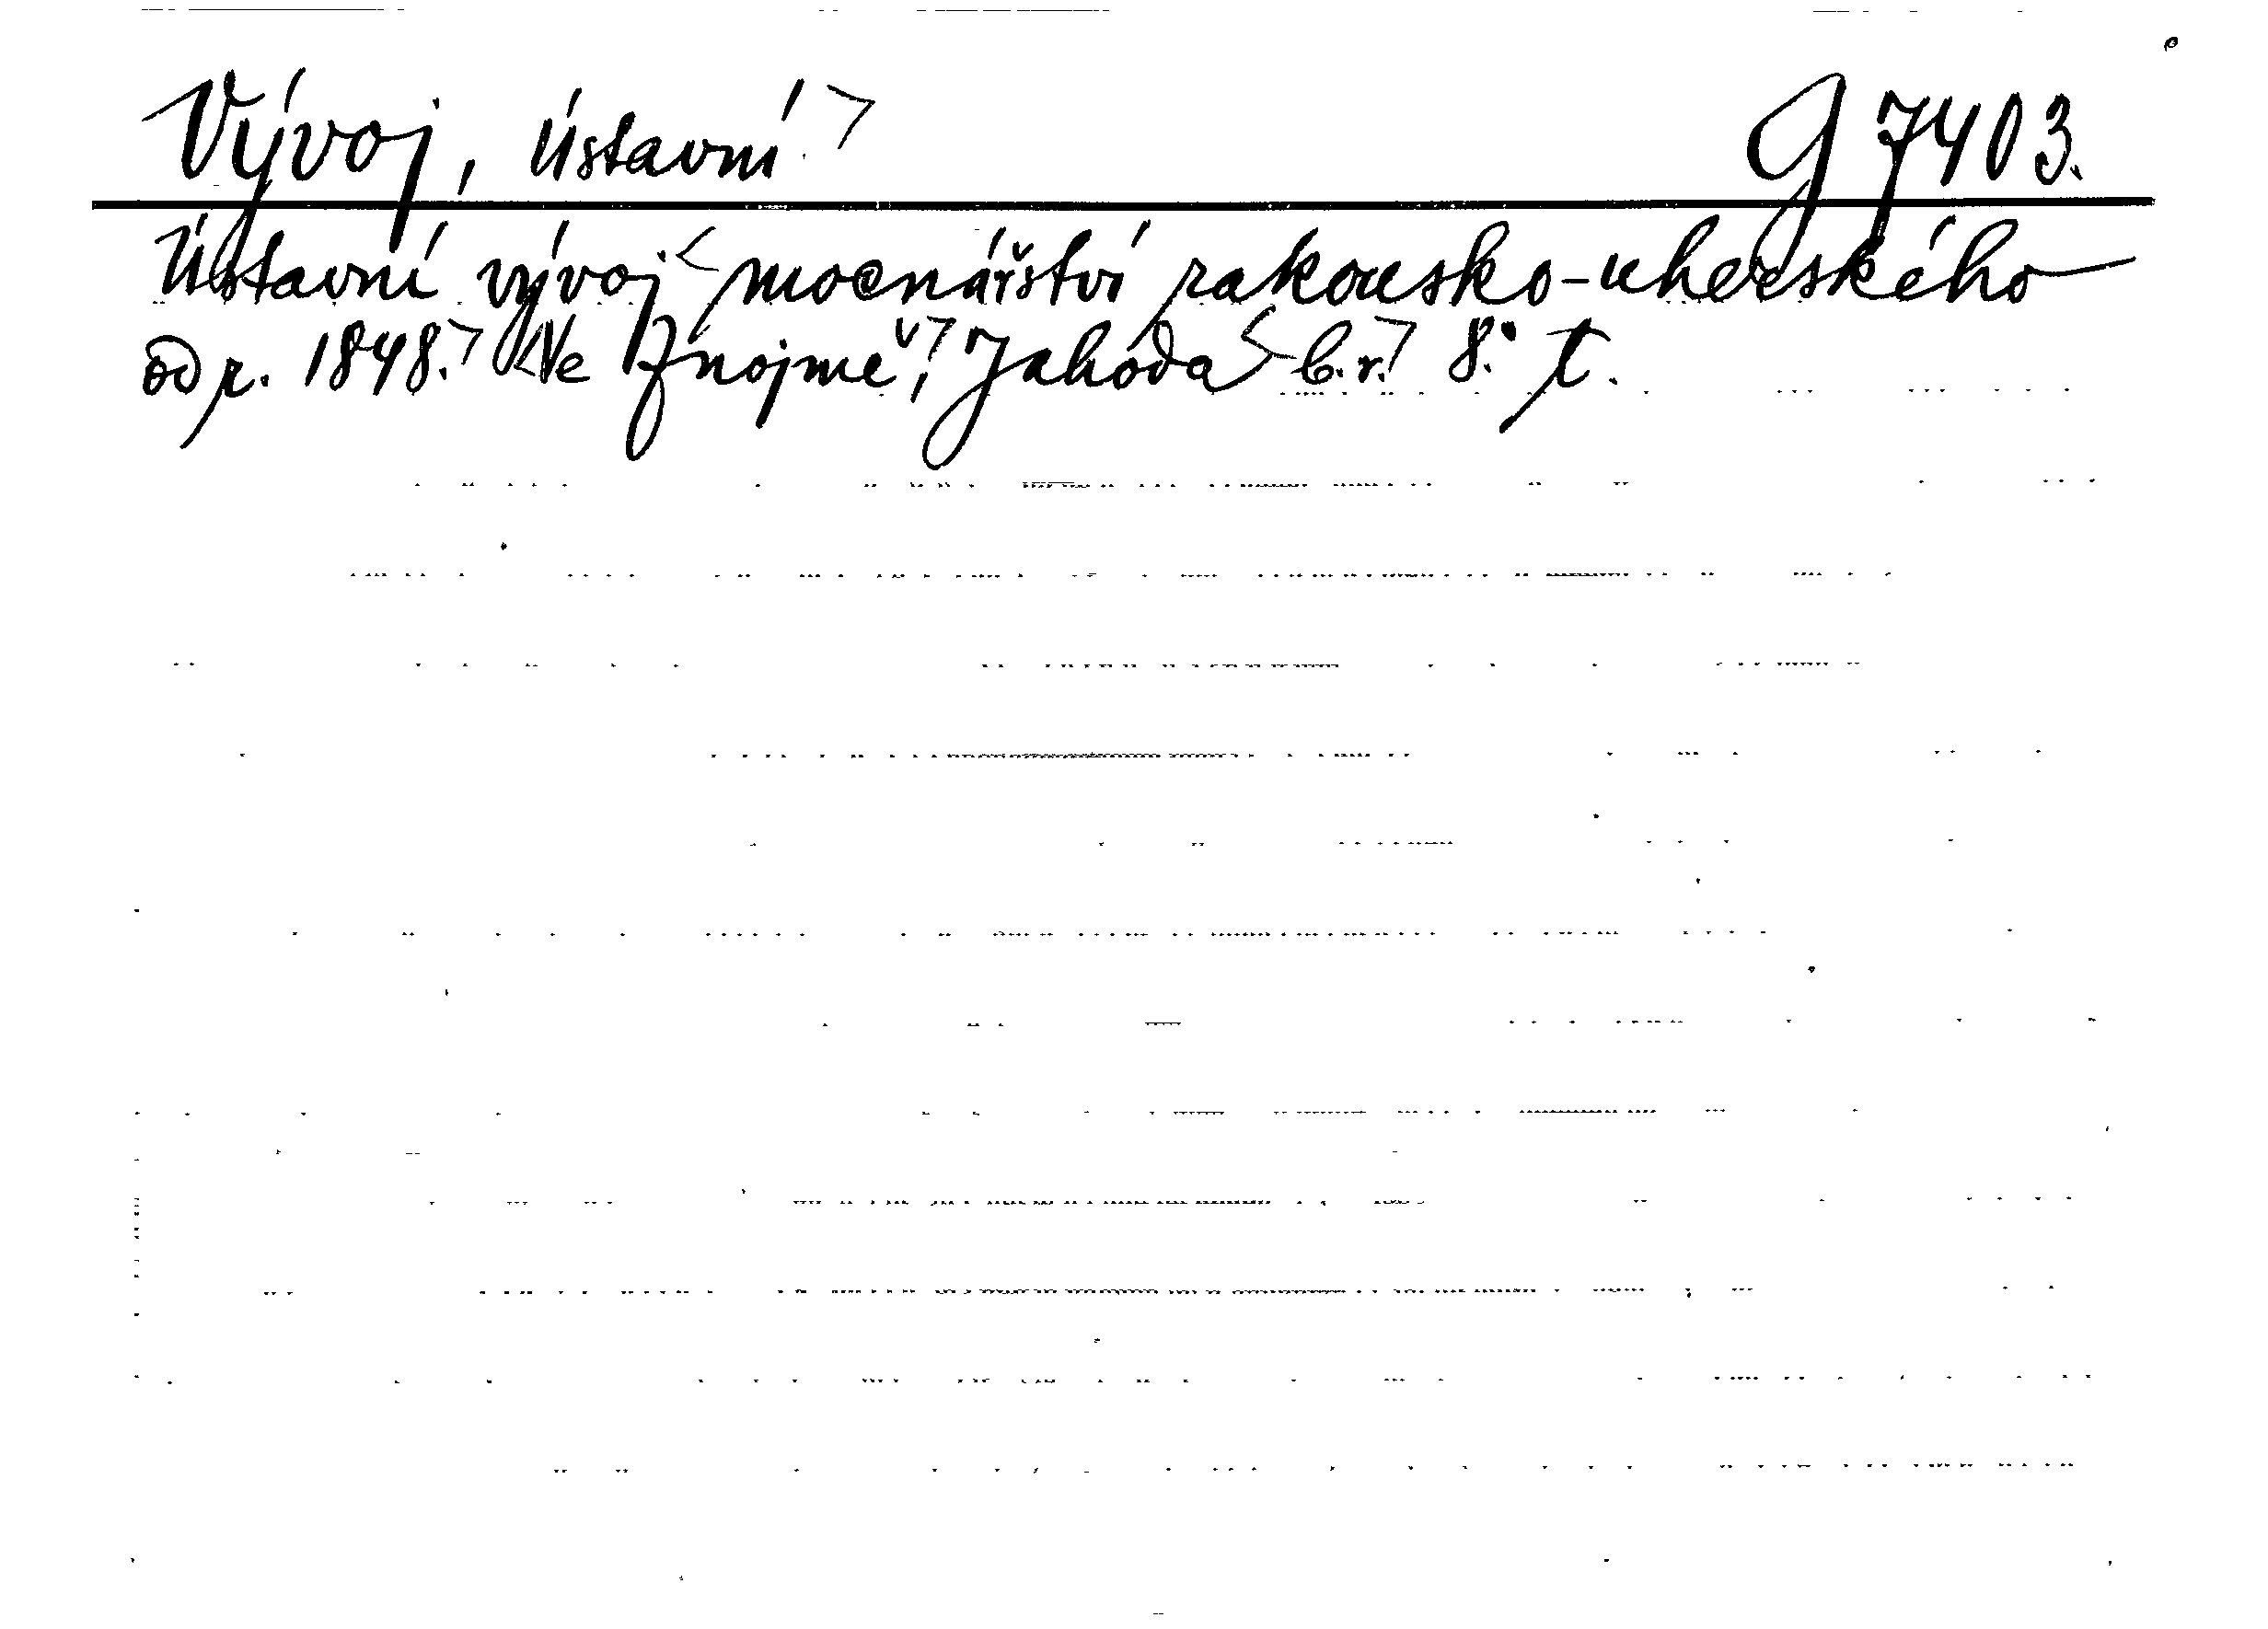 Vývoj, ústavní > G 7403.
Ústavní vývoj < mocnářství rakousko-uherského
od r. 1848. > < Ve Znojmě, > Jahoda < b.r. > 8.° t.